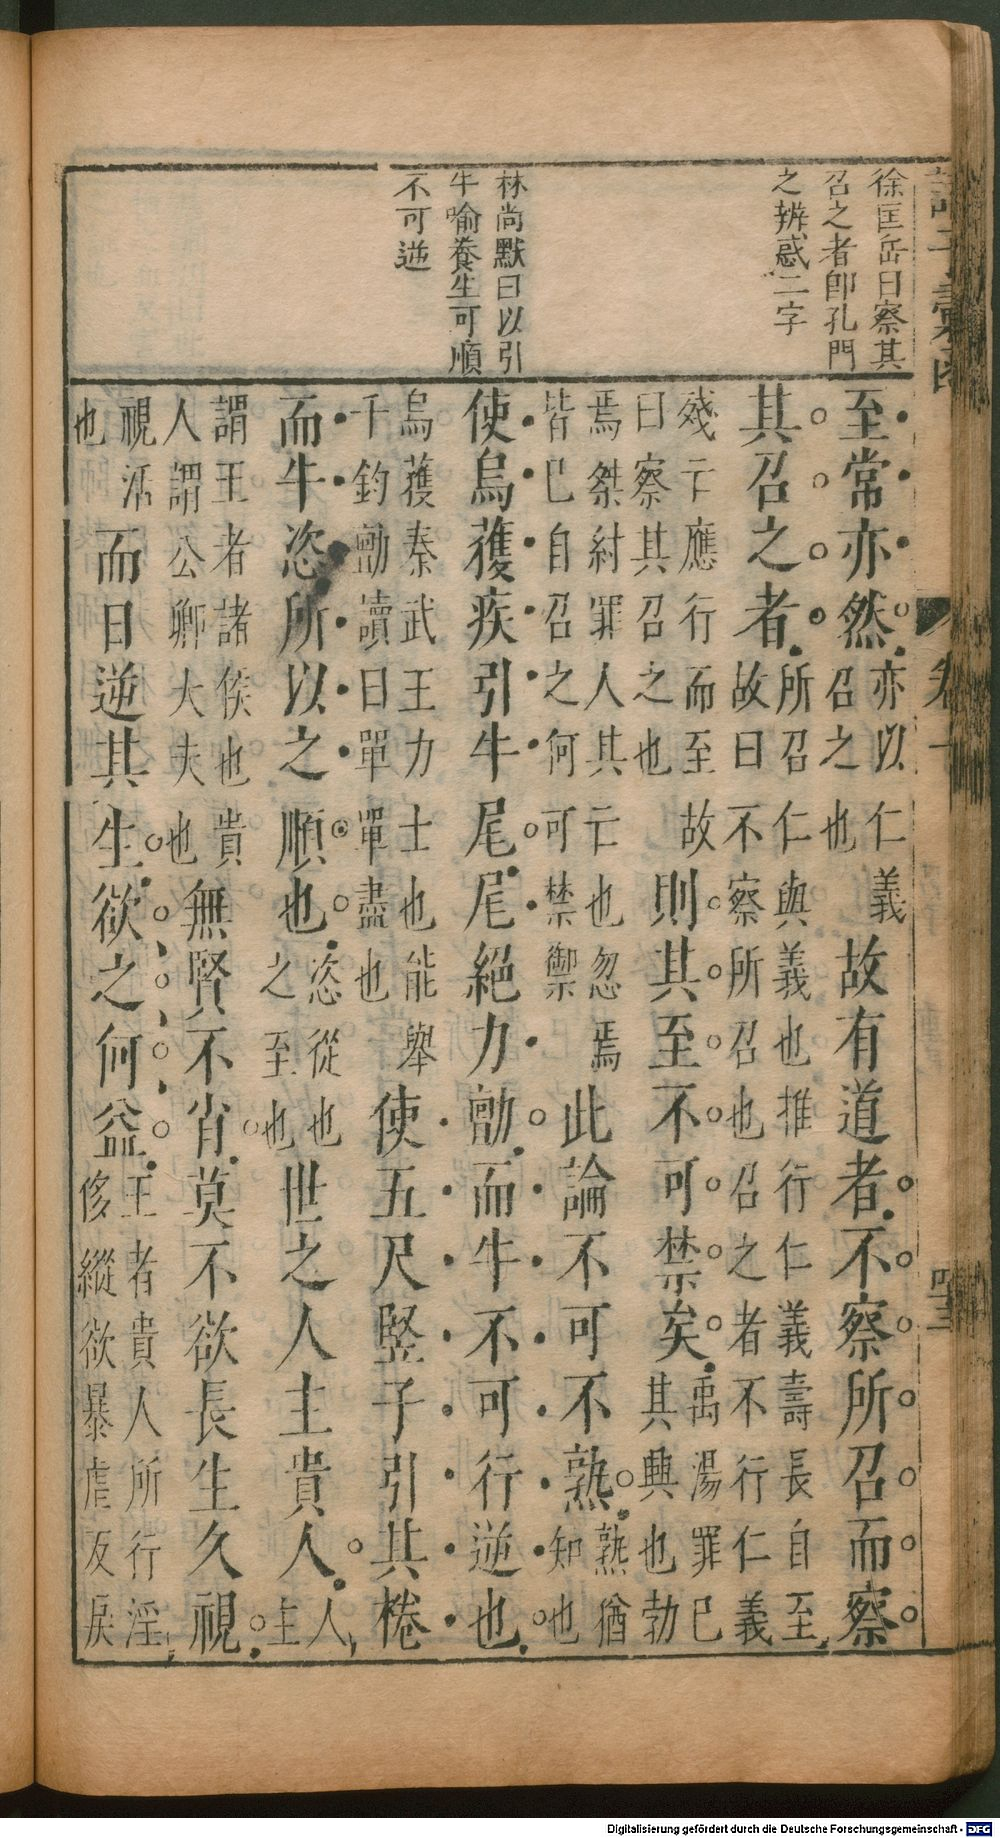 徐匡岳曰察其
召之者即孔門
之辨惑二字
林尚默曰以引
牛喻養生可順
不可逆
至常亦然亦以仁義召之也故有道者不察所召而察
其召之者所召仁與義也推行仁義壽長自至故曰不察所召也召之者不行仁義
殘亡應行而至故曰察其召之也則其至不可禁矣禹湯罪已其興也勃
焉桀紂罪人其亡也忽焉皆已自召之何可禁禦此論不可不熟熟猶知也
使烏獲疾引牛尾尾絕力勯而牛不可行逆也
烏獲秦武王力士也能舉千鈞勯讀曰單單盡也使五尺豎子引其棬
而牛恣所以之順也恣從也之至也世之人主貴人人主
謂王者諸侯也貴人謂公卿大夫也無賢不肖莫不欲長生久視
視活也而日逆其生欲之何益王者貴人所行淫侈縱欲暴虐反戾
Digitalisierung gefördert durch die Deutsche Forschungsgemeinschaft - DFG